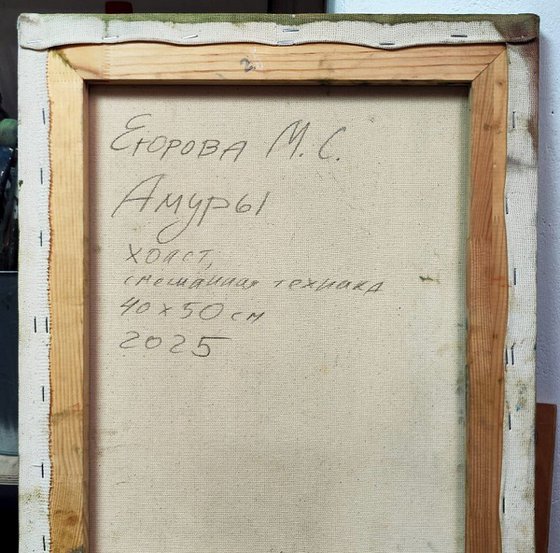 2
Егорова М. С.
Амуры
холст,
смешанная техника
40 x 50 см
2025